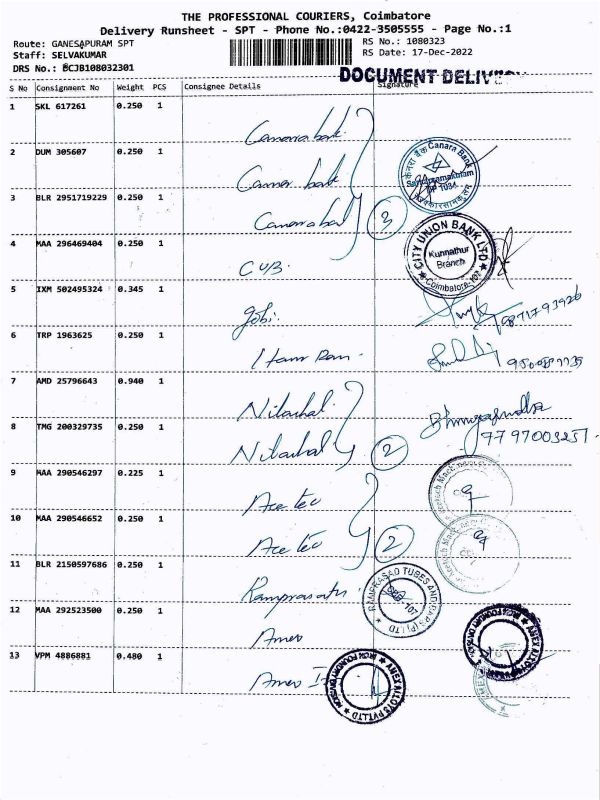 THE PROFESSIONAL COURIERS, Coimbatore
Delivery Runsheet - SPT - Phone No.:0422-3505555 - Page No.:1
Route: GANESAPURAM SPT
RS No.: 1080323
Staff: SELVAKUMAR
RS Date: 17-Dec-2022
DRS No.: BCJB108032301
DOCUMENT DELIVERY
S No Consignment No Weight PCS Consignee Details Signature
1 SKL 617261 0.250 1 Canara bank
2 DUM 305607 0.250 1 Canar bank
केनरा बैंक Canara Bank
DP 1034
3 BLR 2951719229 0.250 1 Canara bank 3
4 MAA 296469404 0.250 1 CUB
CITY UNION BANK LTD
Kunnathur
Branch
Coimbatore-107
5 IXM 502495324 0.345 1 Gobi
6 TRP 1963625 0.250 1
7 AMD 25796643 0.940 1 Nilachal
8 TMG 200329735 0.250 1 Nilachal 2
7797003257
9 MAA 290546297 0.225 1 Ace tec
10 MAA 290546652 0.250 1 Ace tec 2
11 BLR 2150597686 0.250 1 Ramprasath
RAMPRASAD TUBES AND CAPS (P) LTD
12 MAA 292523500 0.250 1 Amex
13 VPM 4886881 0.480 1 Amex
AMEX ALLOYS PVT LTD
IRON FOUNDRY DIVISION
AMEX ALLOYS
IRON FOUNDRY